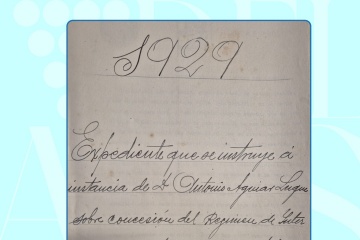 1929
Expediente que se instruye á
instancia de Dn Antonio Aguiar Luque
sobre concesión del Regimen de Inter